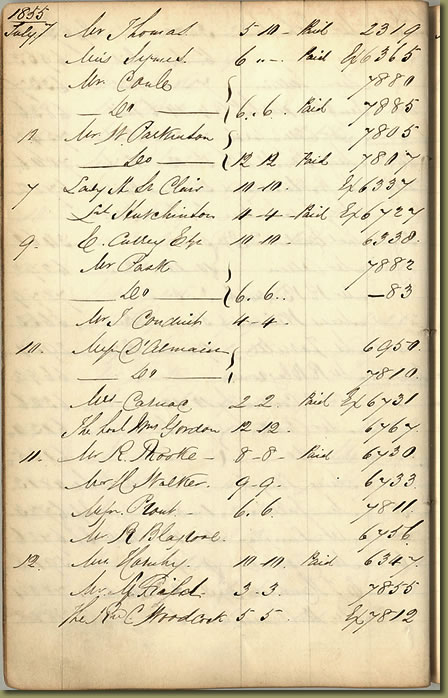 1855
July 7 Mr Thomas 5 10 - Paid 2319
Miss Symes 6 " - Paid Ex 6365
Mr Coule 7880
— Do — 6..6. Paid 7885
12 Mr W. Parkinson 7805
— Do — 12 12 Paid 7807
7 Lady H St Clair 10-10. Ex 6337
Lt Hutchinson 4-4- Paid Ex 6727
9. E. Currey Esq 10-10- 6338.
Mr Pask 7882
— Do — 6.6.. -83
Mr J Conduit 4-4-
10. D'Almaine 6950
— Do — 7810
Mrs Carnac 2 2. Paid Ex 6731
The Gordon 12-12. 6767
11. Mr R. 8-8- Paid 6730
H Walker. 9-9. 6733
Prout - 6.6. 7811
Mr R Blagrove. 6756
12. Hamby. 10-10. Paid 6347
Mr Field. 3-3. 7855
The Revd C Woodcock 5 5. Ex 7812